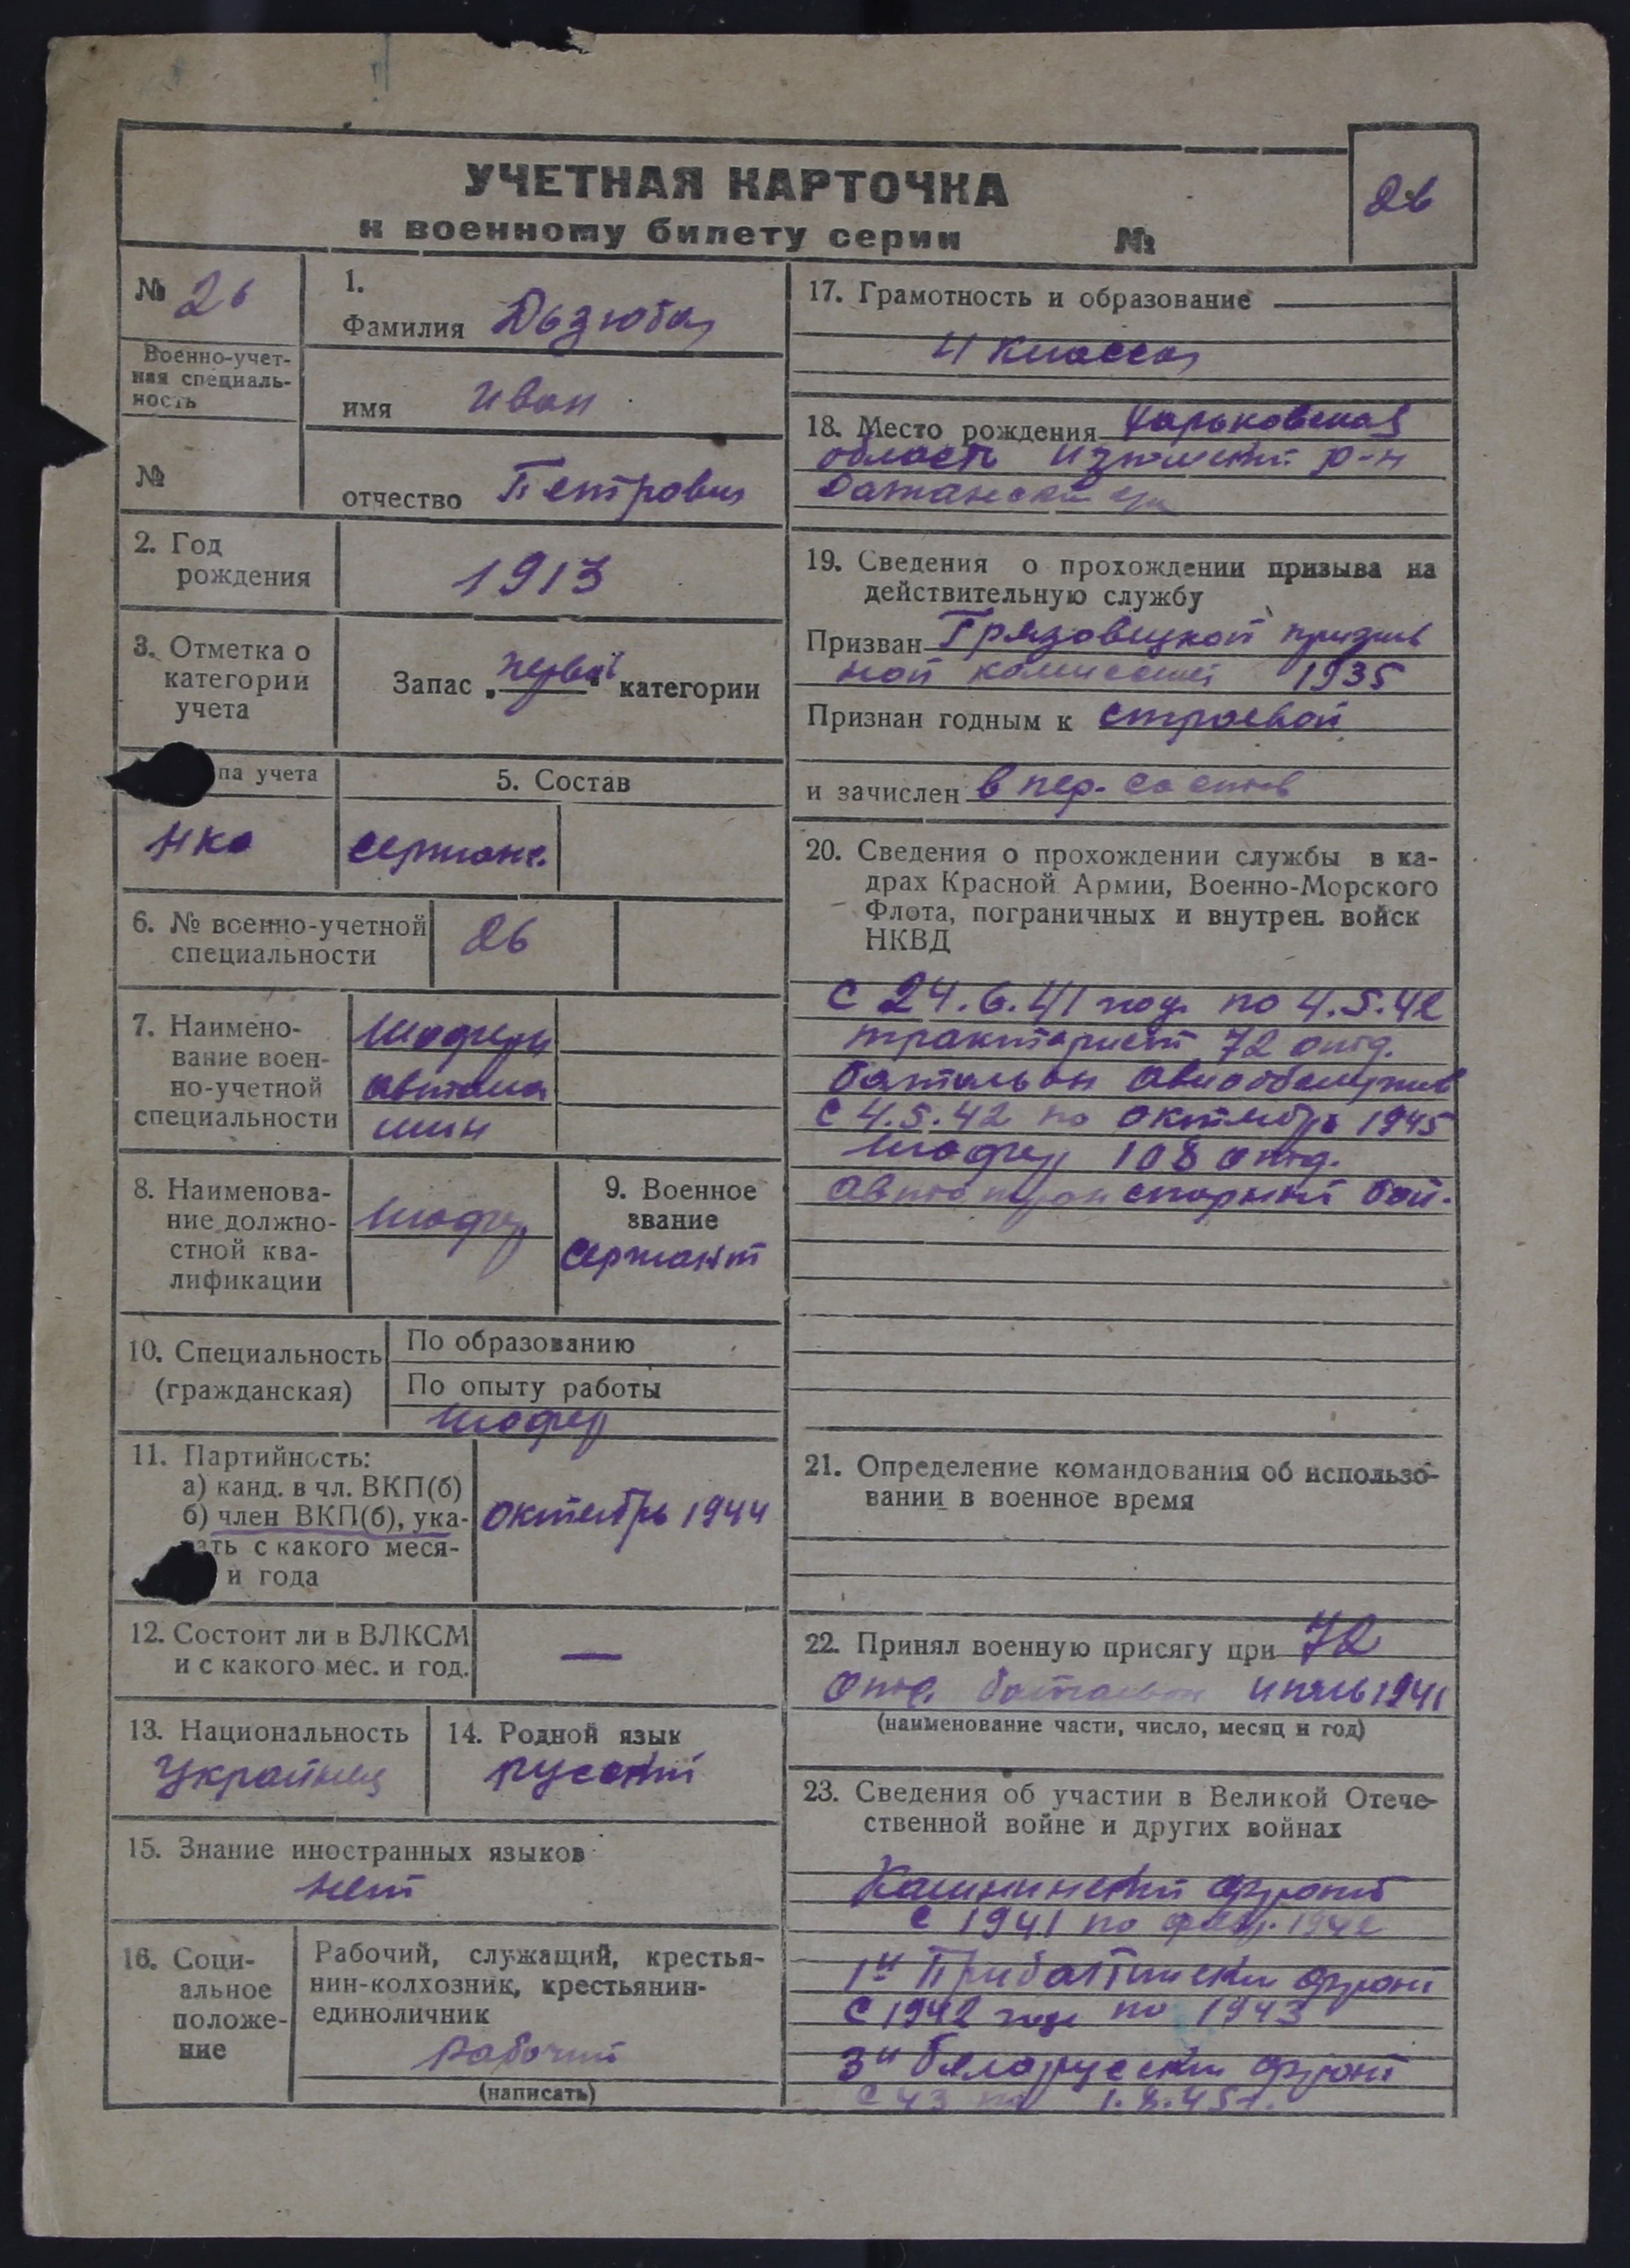 УЧЕТНАЯ КАРТОЧКА
к военному билету серии №
26
№ 26
Военно-учет-
ная специаль-
ность
№
1.
Фамилия Дьзюба
имя Иван
отчество Петрович
2. Год
рождения
1913
3. Отметка о
категории
учета
Запас „первой“ категории
па учета
нко
5. Состав
сержант.
6. № военно-учетной
специальности
26
7. Наимено-
вание воен-
но-учетной
специальности
Шоферы
автома
шин
8. Наименова-
ние должно-
стной ква-
лификации
Шофер
9. Военное
звание
сержант
10. Специальность
(гражданская)
По образованию
По опыту работы
Шофер
11. Партийность:
а) канд. в чл. ВКП(б)
б) член ВКП(б), ука-
зать с какого меся-
и года
октябрь 1944
12. Состоит ли в ВЛКСМ
и с какого мес. и год.
—
13. Национальность
Украинец
14. Родной язык
русский
15. Знание иностранных языков
нет
16. Соци-
альное
положе-
ние
Рабочий, служащий, крестья-
нин-колхозник, крестьянин-
единоличник
Рабочий
(написать)
17. Грамотность и образование
4 класса
18. Место рождения Харьковская
область Изюмский р-н
19. Сведения о прохождении призыва на
действительную службу
Призван Грязовецкой призыв
ной комиссией 1935
Признан годным к строевой
и зачислен в пер. состав
20. Сведения о прохождении службы в ка-
драх Красной Армии, Военно-Морского
Флота, пограничных и внутрен. войск
НКВД
С 24.6.41 год. по 4.5.42
тракторист 72 отд.
батальон авиаобслужив
С 4.5.42 по октябрь 1945
Шофер 108 отд.
автотранспортный бат.
21. Определение командования об использо-
вании в военное время
22. Принял военную присягу при 72
отд. батальон июль 1941
(наименование части, число, месяц и год)
23. Сведения об участии в Великой Отече-
ственной войне и других войнах
Калининский фронт
с 1941 по февр. 1942
1й Прибалтийский фронт
С 1942 года по 1943
3й Белорусский фронт
С 43 по 1.8.45г.